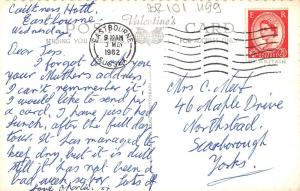 BR101 U99
Caithness Hotel,
Eastbourne.
Wednesday.
Valentine's
POST CARD
SENDING YOU
EASTBOURNE
9:30AM
3 MAY
1962
SUSSEX
Dear
I forgot to get you
your Mothers address
I can't remember it.
I would like to send her
a card, I have just had
lunch, after the full day
tour. It has managed to
keep dry, but it is dull
Still it has not been a
bad week so far. Lots of
love
Mrs C. Mat
46 Maple Drive
Northstead
Scarborough
Yorks.